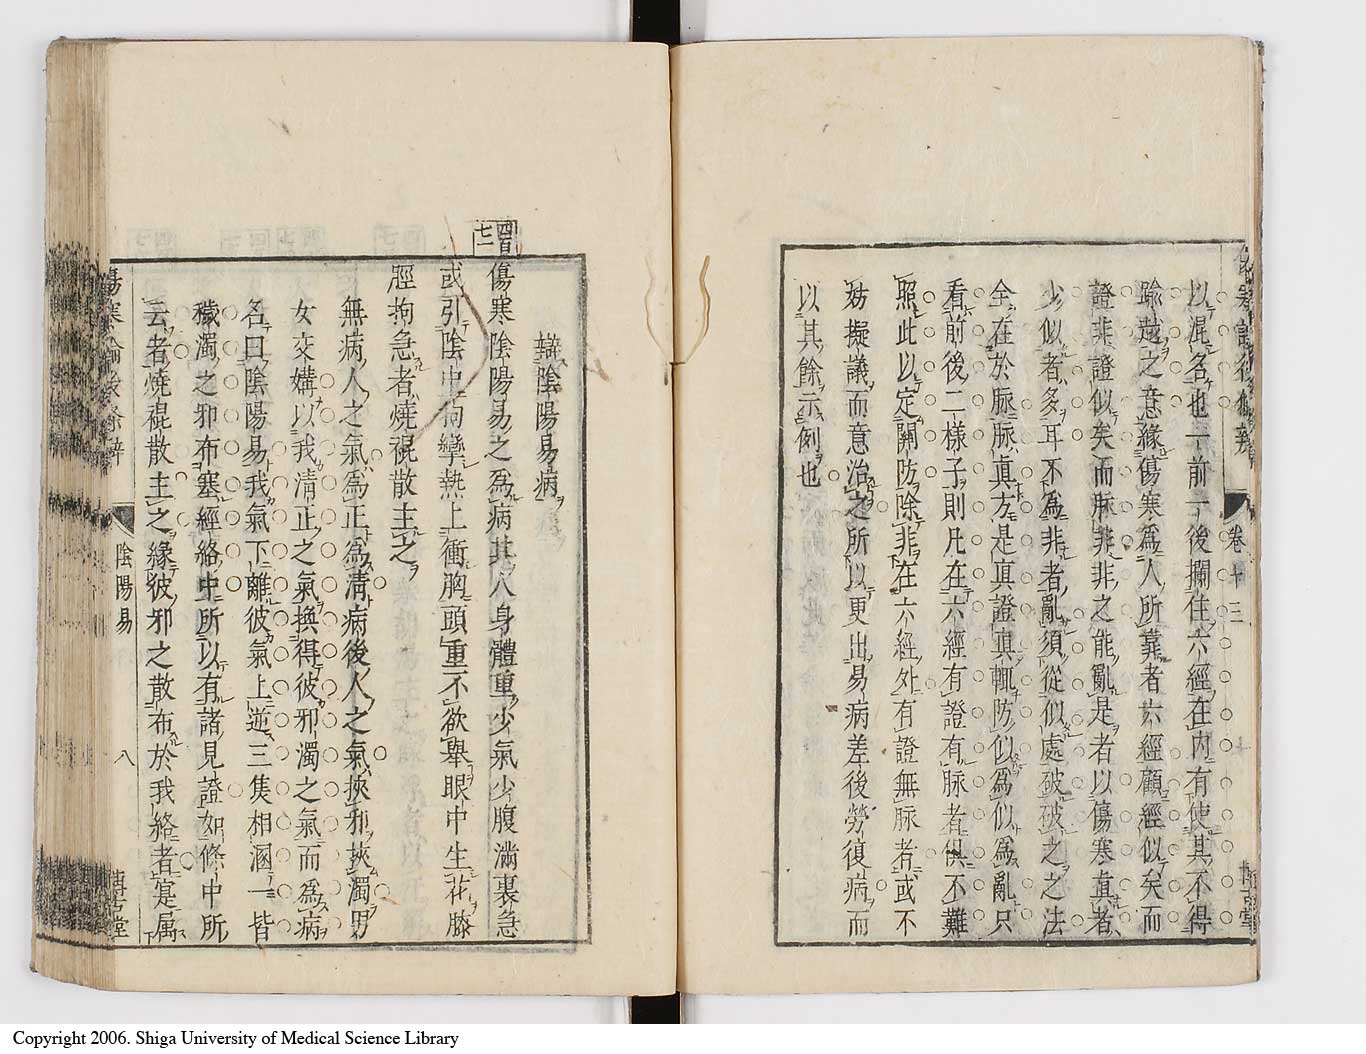 以混名也一前一後攔住六經在内有使其不得
踰越之意緣傷寒爲人所靠者六經顧經似矣而
證非證似矣而脉非非之能亂是者以傷寒眞者
少似者多耳不爲非者亂須從似處破破之之法
全在於脉脉眞方是眞證眞輒防似爲似爲亂只
看前後二樣子則凡在六經有證有脉者俱不難
照此以定關防除非在六經外有證無脉者或不
妨擬議而意治之所以更出易病差後勞復病而
以其餘示例也
卷十三
辨陰陽易病
四百七一
傷寒陰陽易之爲病其人身體重少氣少腹滿裏急
或引陰中拘攣熱上衝胸頭重不欲舉眼中生花膝
脛拘急者燒裩散主之
無病人之氣爲正爲清病後人之氣挾邪挾濁男
女交媾以我清正之氣換得彼邪濁之氣而爲病
名曰陰陽易我氣下離彼氣上逆三焦相溷一皆
穢濁之邪布塞經絡中所以有諸見證如條中所
云者燒裩散主之緣彼邪之散布於我絡者寔属
傷寒論後條辨
陰陽易
八
博古堂
Copyright 2006. Shiga University of Medical Science Library